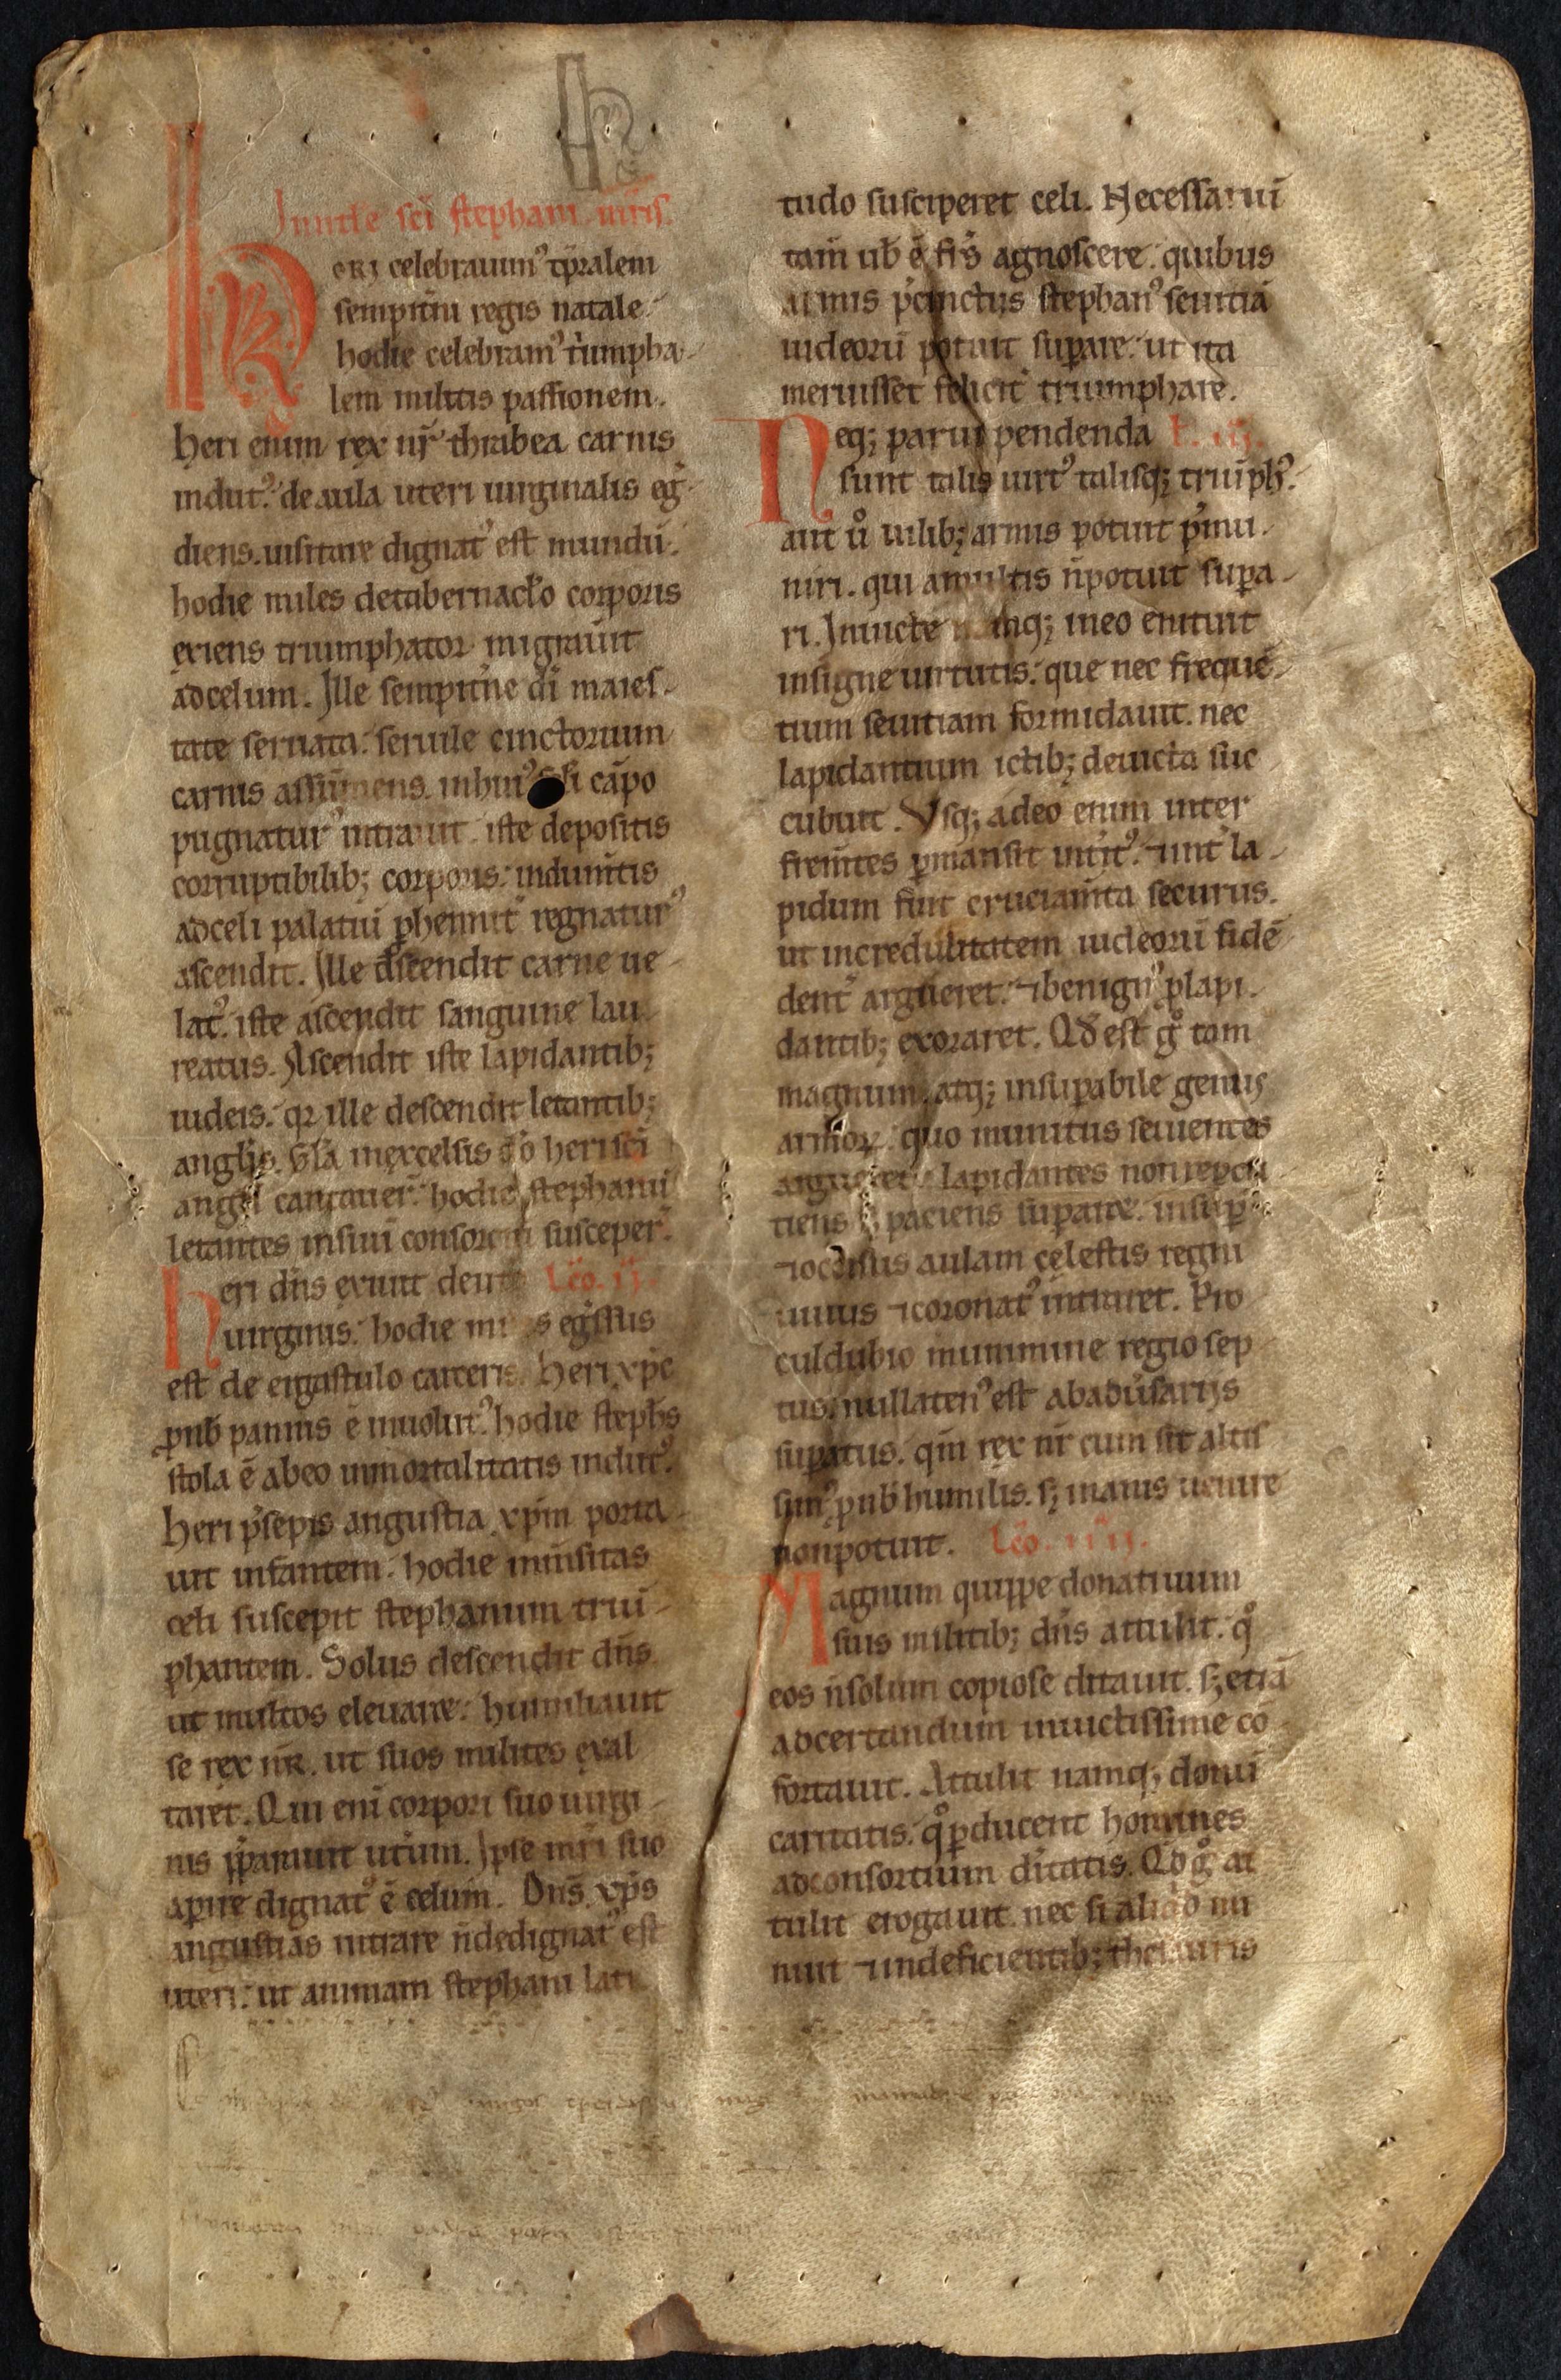 In natle sci stephani. mris.
HERI celebrauimꝰ tp̄ralem
sempit̄ni regis natale.
hodie celebramꝰ t̍umpha-
lem militis passionem.
heri enim rex nr̄ thrabea carnis
indutꝰ. de aula uteri uirginalis eg̃-
diens. uisitare dignatꝰ est mundū.
hodie miles de tabernac̄lo corporis
exiens triumphator migrauit
ad celum. Ille sempit̄ne di maies-
tate seruata. seruile cinctorium
carnis assūmens. in huiꝰ sc̄li cāpo
pugnaturꝰ intrauit. iste depositis
corruptibilib; corporis. indum̄tis
ad celi palatiū phennit̄ regnaturꝰ
ascendit. Ille descendit carne ue-
latꝰ. iste ascendit sanguine lau-
reatus. Ascendit iste lapidantib;
iudeis. qr ille descendit letantib;
anglis. Gla in excelsis do heri sci
angli cantauer̄. hodie stephanū
letantes in suū consortiū susceper̄.
heri dns exiuit de ut̄o Lc̄o. ii.
uirginis. hodie miles eg̃ssus
est de ergastulo carceris. Heri xp̄c
p nob pannis ē inuolutꝰ. hodie steph̄s
stola ē ab eo inmortalitatis indutꝰ.
Heri p̄sepis angustia xpm porta-
uit infantem. hodie inm̄sitas
celi suscepit stephanum triū-
phantem. Solus descendit dns.
ut multos eleuaret. humiliauit
se rex nr̄. ut suos milites exal
taret. Qui eni corpori suo uirgi-
nis pparauit ut̄um. Ipse mri suo
apire dignatꝰ ē celum. Dns xps
angustias intrare n̄ dedignatꝰ est
uteri. ut animam stephani lati
tudo susciperet celi. Necessariū
tam̄ ub̄ ē frs agnoscere. quibus
armis p̄cinctus stephanꝰ seuitiā
iudeorū potuit supare. ut ita
meruisset felicit̄ triumphare.
Neq; parui pendenda L. iii.
sunt talis uirtꝰ talisq; triūphꝰ.
aut uͦ uilib; armis potuit p̄mu-
niri. qui a multis n̄ potuit supa-
ri. Inuicte namq; in eo enituit
insigne uirtutis. que nec frequē-
tium seuitiam formidauit. nec
lapidantium ictib; deuicta suc
cubuit. Vsq; adeo enim inter
frem̄tes pmansit mitꝰ. ⁊ int̄ la-
pidum fuit cruciam̄ta securus.
ut incredulitatem iudeorū fidē
dent̄ argueret. ⁊ benignꝰ p lapi-
dantib; exoraret. Qd est gͦ tam
magnum. atq; insupabile genus
armoꝝ. quo munitus seuientes
argueret. lapidantes non repcu
tiens ⁊ paciens suparet. insup
⁊ occisus aulam celestis regni
uiuus ⁊ coronatꝰ intraret. Pro
culdubio munimine regio sep
tus. nullatenꝰ est ab adūsariis
supatus. qm̄ rex nr̄ cum sit altis
simꝰ. p nob humilis. s; inanis uenire
non potuit. Lc̄o. iiii.
Magnum quippe donatiuum
suis militib; dns attulit. qͦ
eos n̄ solum copiose ditauit. s; etiā
ad certandum inuictissime cō-
fortauit. Attulit namq; donū
caritatis. qͦ pducent homines
ad consortium di̅tatis. Qd gͦ at
tulit erogauit. nec si aliqd mi
nuit ⁊ indeficientib; thesauris